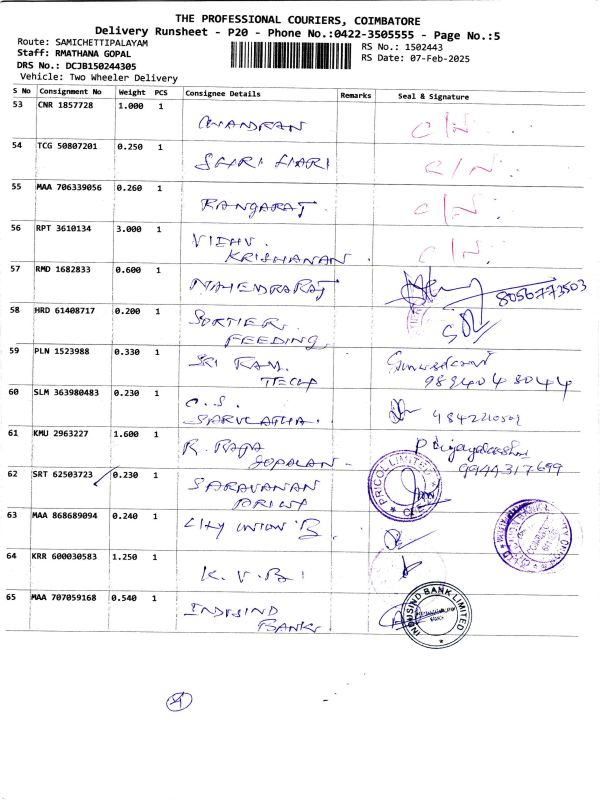 THE PROFESSIONAL COURIERS, COIMBATORE
Delivery Runsheet - P20 - Phone No.:0422-3505555 - Page No.:5
Route: SAMICHETTIPALAYAM
Staff: RMATHANA GOPAL
DRS No.: DCJB150244305
Vehicle: Two Wheeler Delivery
RS No.: 1502443
RS Date: 07-Feb-2025
S No Consignment No Weight PCS Consignee Details Remarks Seal & Signature
53 CNR 1857728 1.000 1 CHANDRAN C/N.
54 TCG 50807201 0.250 1 SHRI HARI C/N.
55 MAA 706339056 0.260 1 RANGARAJ. C/N.
56 RPT 3610134 3.000 1 VISHU. C/N.
KRISHANAN.
57 RMD 1682833 0.600 1 MAHENDRARAJ 8056773503
58 HRD 61408717 0.200 1 SORTIER.
FEEDING.
59 PLN 1523988 0.330 1 SRI RAM.
TECH 9894043044
60 SLM 363980483 0.230 1 C.S.
SARULATHA.
61 KMU 2963227 1.600 1 R. RAJA P Vijayalakshmi
GOPALAN - 9944317699
62 SRT 62503723 0.230 1 SARAVANAN PRICOL LIMITED
PRIYA
63 MAA 868689094 0.240 1 CITY UNION B.
64 KRR 600030583 1.250 1 K.V.B.
65 MAA 707059168 0.540 1 INDUSIND INDUSIND BANK LIMITED
BANK.